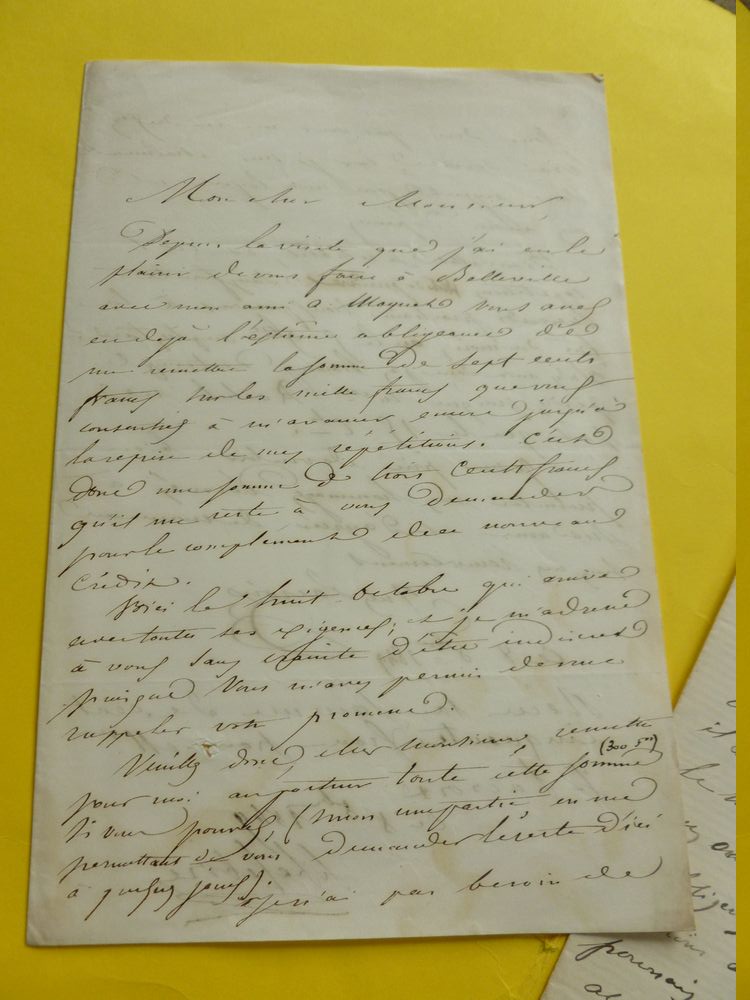 Mon cher Monsieur,
Depuis la visite que j'ai eu le
plaisir de vous faire à Belleville
avec mon ami A Maquet vous avez
eu déjà l'extrême obligeance de
me remettre la somme de sept cents
francs sur les mille francs que vous
consentiez à m'avancer encore jusqu'à
la reprise de mes répétitions. C'est
donc une somme de trois cents francs
qu'il me reste à vous demander
pour le complément de ce nouveau
crédit.
Voici le huit Octobre qui arrive
avec toutes ses exigences, et je m'adresse
à vous sans crainte d'être indiscret
puisque vous m'avez permis de vous
rappeler votre promesse.
Veuillez donc, cher monsieur remettre
pour moi au porteur toute cette somme (300 f)
si vous pouvez, (sinon une partie en me
permettant de vous demander le reste d'ici
à quelques jours).
Je n'ai pas besoin de
pourrais